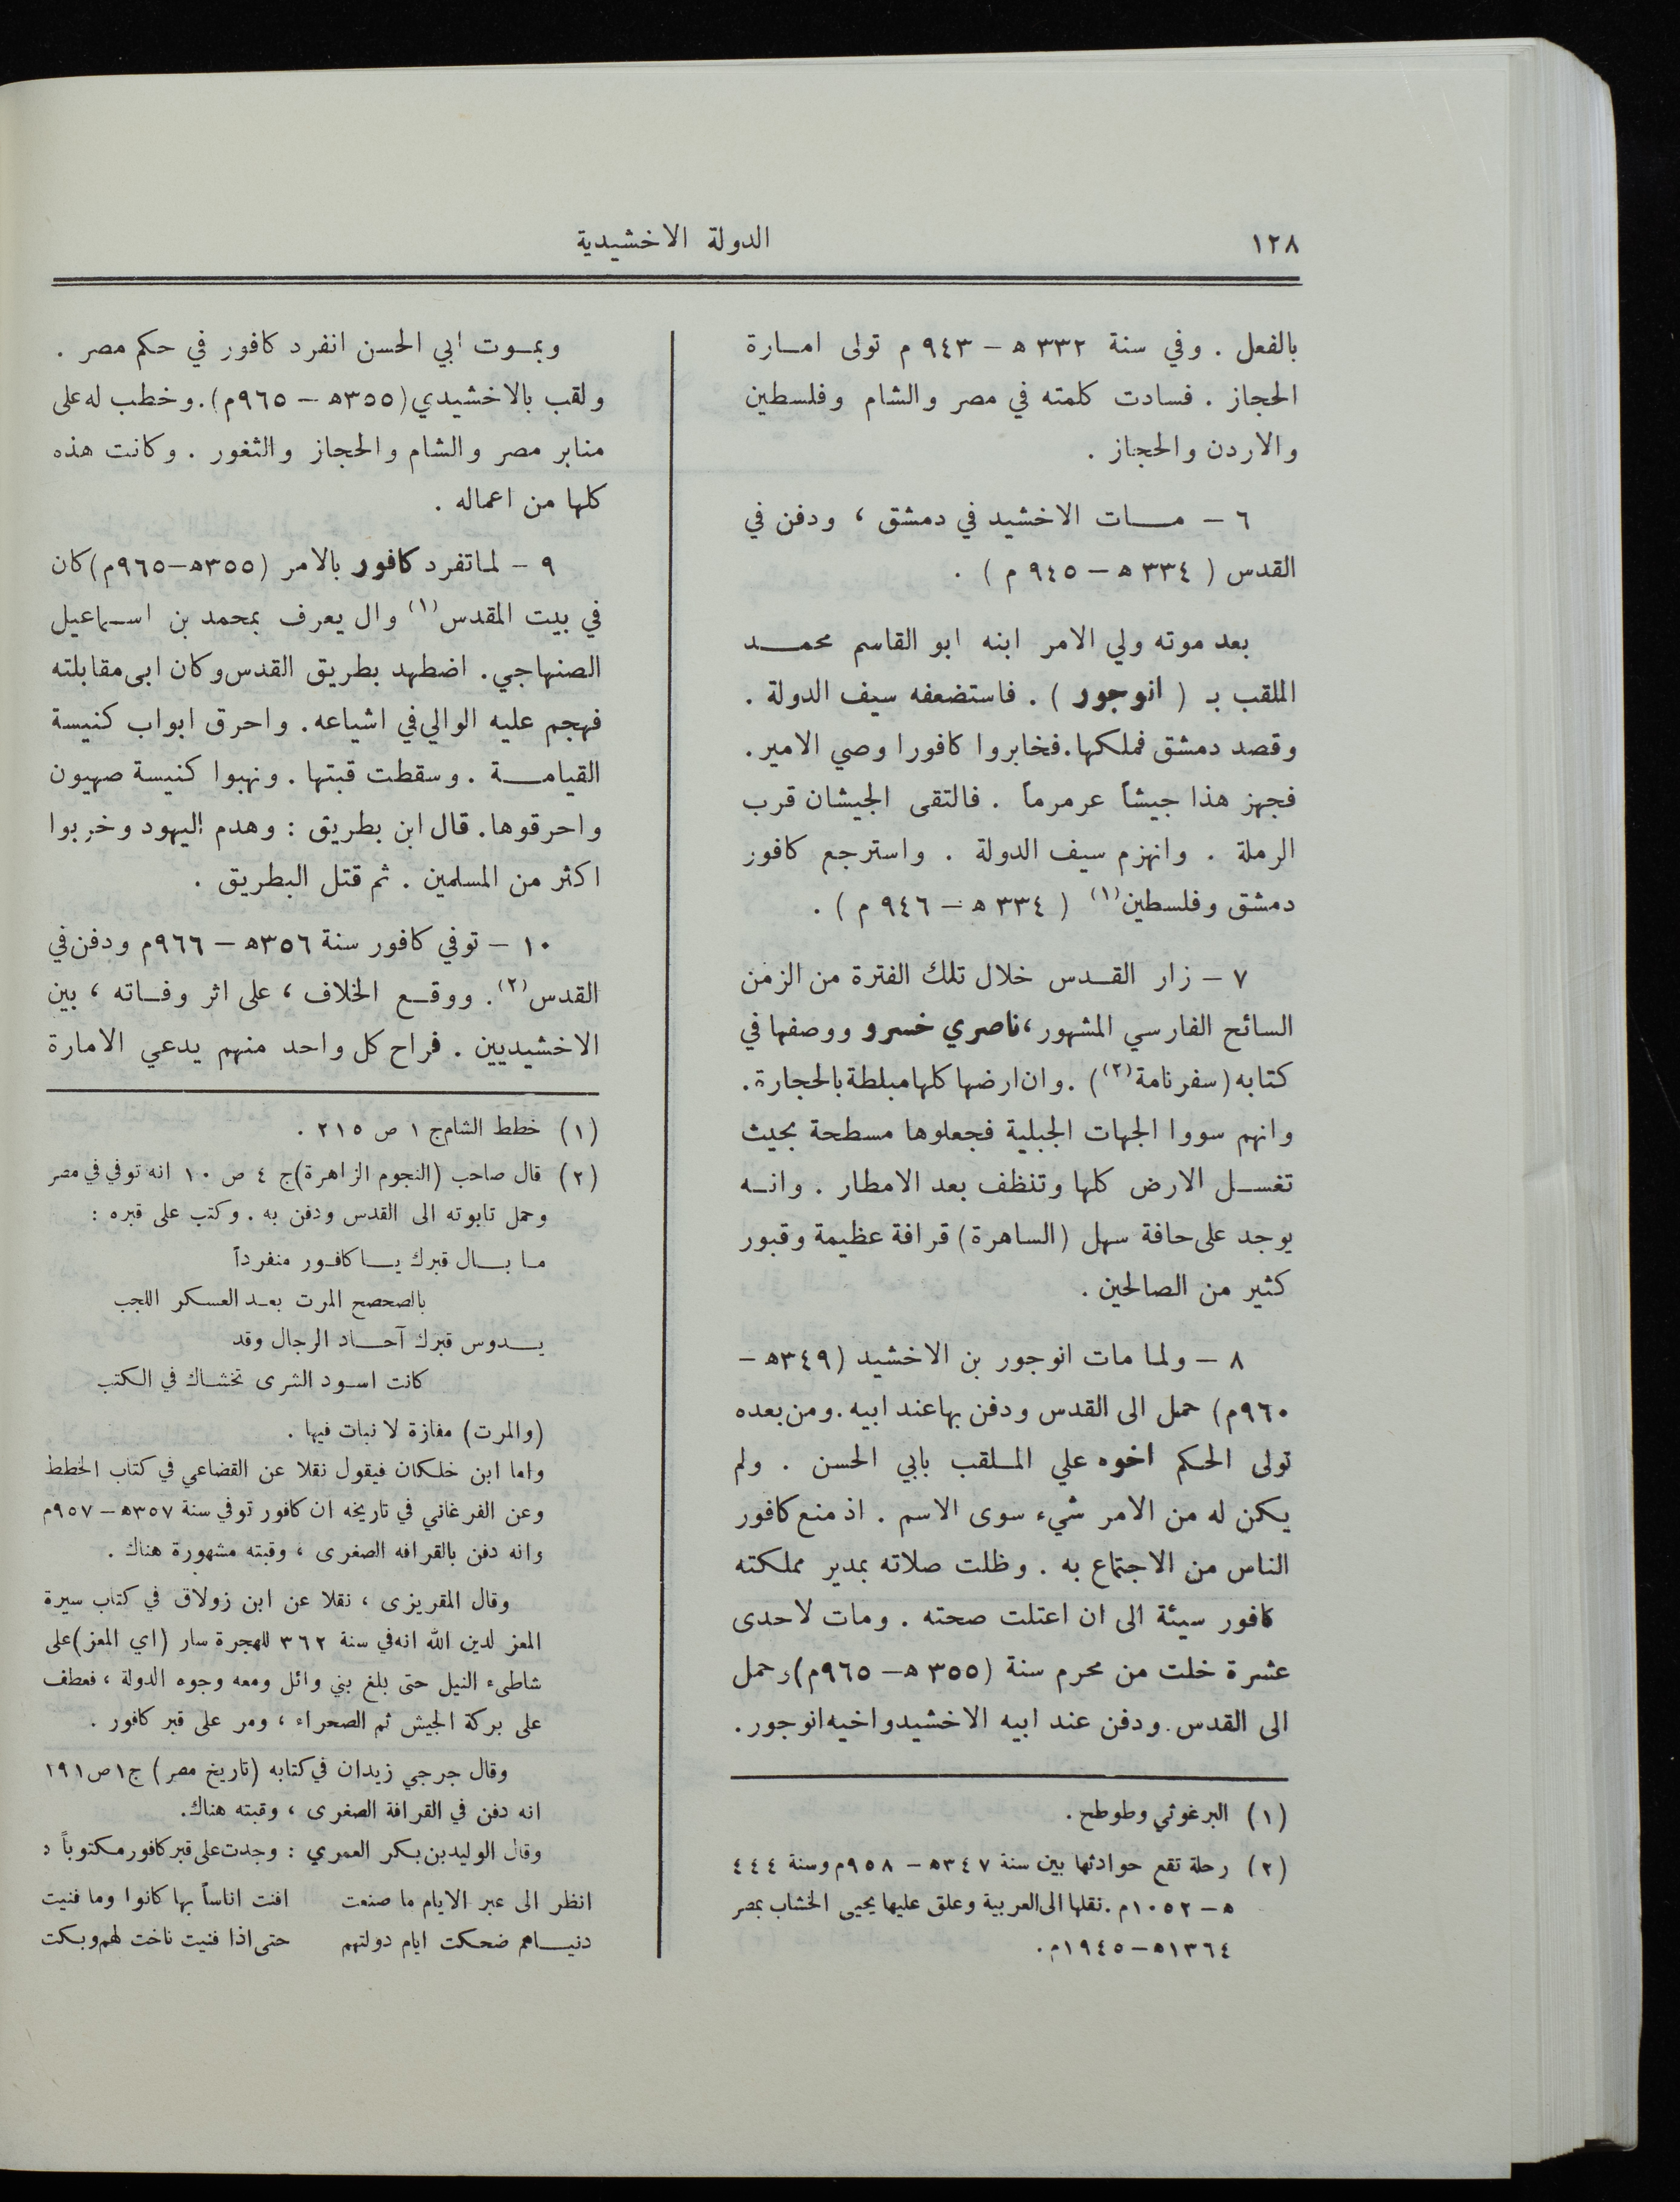 ١٢٨
الدولة الاخشيدية
بالفعل . وفي سنة ٣٣٢ ه – ٩٤٣ م تولى امارة
الحجاز . فسادت كلمته في مصر والشام وفلسطين
والاردن والحجاز .
٦ – مات الاخشيد في دمشق ، ودفن في
القدس ( ٣٣٤ ه – ٩٤٥ م ) .
بعد موته ولي الامر ابنه ابو القاسم محمد
الملقب بـ ( انوجور ) . فاستضعفه سيف الدولة .
وقصد دمشق فملكها . فخابروا كافورا وصي الامير .
فجهز هذا جيشاً عرمرماً . فالتقى الجيشان قرب
الرملة . وانهزم سيف الدولة . واسترجع كافور
دمشق وفلسطين(١) ( ٣٣٤ ه – ٩٤٦ م ) .
٧ – زار القدس خلال تلك الفترة من الزمن
السائح الفارسي المشهور ، ناصري خسرو ووصفها في
كتابه (سفر نامة(٢)) . وان ارضها كلها مبلطة بالحجارة .
وانهم سووا الجهات الجبلية فجعلوها مسطحة بحيث
تغسل الارض كلها وتنظف بعد الامطار . وانه
يوجد على حافة سهل (الساهرة) قرافة عظيمة وقبور
كثير من الصالحين .
٨ – ولما مات انوجور بن الاخشيد (٣٤٩ه –
٩٦٠م) حمل الى القدس ودفن بها عند ابيه . ومن بعده
تولى الحكم اخوه علي الملقب بابي الحسن . ولم
يكن له من الامر شيء سوى الاسم . اذ منع كافور
الناس من الاجتماع به . وظلت صلاته بمدير مملكته
كافور سيئة الى ان اعتلت صحته . ومات لاحدى
عشرة خلت من محرم سنة (٣٥٥ ه – ٩٦٥م) وحمل
الى القدس . ودفن عند ابيه الاخشيد واخيه انوجور .
(١) البرغوثي وطوطح .
(٢) رحلة تقع حوادثها بين سنة ٣٤٧ه – ٩٥٨م وسنة ٤٤٤
ه – ١٠٥٢م . نقلها الى العربية وعلق عليها يحيى الخشاب بمصر
١٣٦٤ه – ١٩٤٥م .
وبموت ابي الحسن انفرد كافور في حكم مصر .
ولقب بالاخشيدي (٣٥٥ه – ٩٦٥م) . وخطب له على
منابر مصر والشام والحجاز والثغور . وكانت هذه
كلها من اعماله .
٩ – لما تفرد كافور بالامر (٣٥٥ه – ٩٦٥م) كان
في بيت المقدس(١) وال يعرف بمحمد بن اسماعيل
الصنهاجي . اضطهد بطريق القدس وكان ابى مقابلته
فهجم عليه الوالي في اشياعه . واحرق ابواب كنيسة
القيامة . وسقطت قبتها . ونهبوا كنيسة صهيون
واحرقوها . قال ابن بطريق : وهدم اليهود وخربوا
اكثر من المسلمين . ثم قتل البطريق .
١٠ – توفي كافور سنة ٣٥٦ه – ٩٦٦م ودفن في
القدس(٢) . ووقع الخلاف ، على اثر وفاته ، بين
الاخشيديين . فراح كل واحد منهم يدعي الامارة
(١) خطط الشام ج ١ ص ٢١٥ .
(٢) قال صاحب (النجوم الزاهرة) ج ٤ ص ١٠ انه توفي في مصر
وحمل تابوته الى القدس ودفن به . وكتب على قبره :
ما بال قبرك يا كافور منفرداً
بالصحصح المرت بعد العسكر اللجب
يدوس قبرك آحاد الرجال وقد
كانت اسود الشرى تخشاك في الكتب
(والمرت) مفازة لا نبات فيها .
واما ابن خلكان فيقول نقلا عن القضاعي في كتاب الخطط
وعن الفرغاني في تاريخه ان كافور توفي سنة ٣٥٧ه – ٩٥٧م
وانه دفن بالقرافه الصغرى ، وقبته مشهورة هناك .
وقال المقريزى ، نقلا عن ابن زولاق في كتاب سيرة
المعز لدين الله انه في سنة ٣٦٢ للهجرة سار (اي المعز) على
شاطىء النيل حتى بلغ بني وائل ومعه وجوه الدولة ، فعطف
على بركة الجيش ثم الصحراء ، ومر على قبر كافور .
وقال جرجي زيدان في كتابه (تاريخ مصر) ج١ ص١٩١
انه دفن في القرافة الصغرى ، وقبته هناك .
وقال الوليد بن بكر العمري : وجدت على قبر كافور مكتوباً د
انظر الى عبر الايام ما صنعت افنت اناساً بها كانوا وما فنيت
دنياهم ضحكت ايام دولتهم حتى اذا فنيت ناخت لهم وبكت